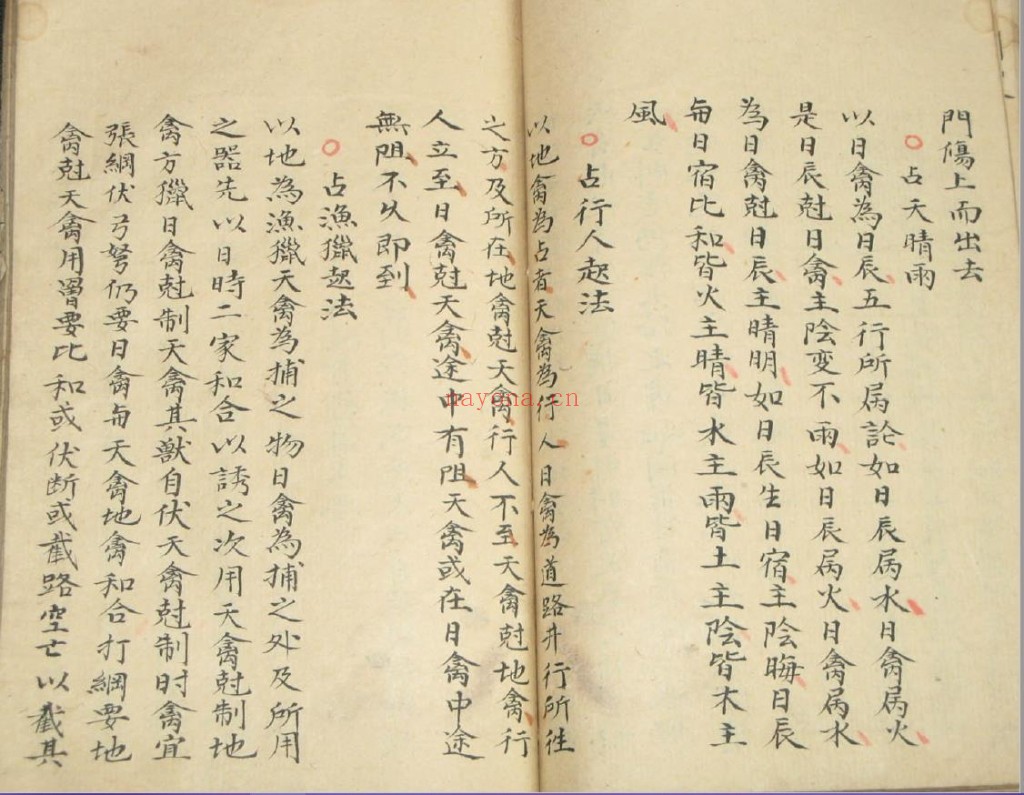 門傷上而出去
占天晴雨
以日禽為日辰五行所属論如日辰属水日禽属火
是日辰尅日禽主陰变不雨如日辰属火日禽属水
為日禽尅日辰主晴明如日辰生日宿主陰晦日辰
每日宿比和皆火主晴皆水主雨皆土主陰皆木主
風
占行人起法
以地禽為占者天禽為行人日禽為道路并行所徃
之方及所在地禽尅天禽行人不至天禽尅地禽行
人立至日禽尅天禽途中有阻天禽或在日禽中途
無阻不久即到
占漁獵起法
以地為漁獵天禽為捕之物日禽為捕之处及所用
之器先以日時二家和合以誘之次用天禽尅制地
禽方獵日禽尅制天禽其獸自伏天禽尅制时禽宜
張網伏弓弩仍要日禽每天禽地禽和合打網要地
禽尅天禽用罾要比和或伏断或截路空亡以截其
nayona.cn